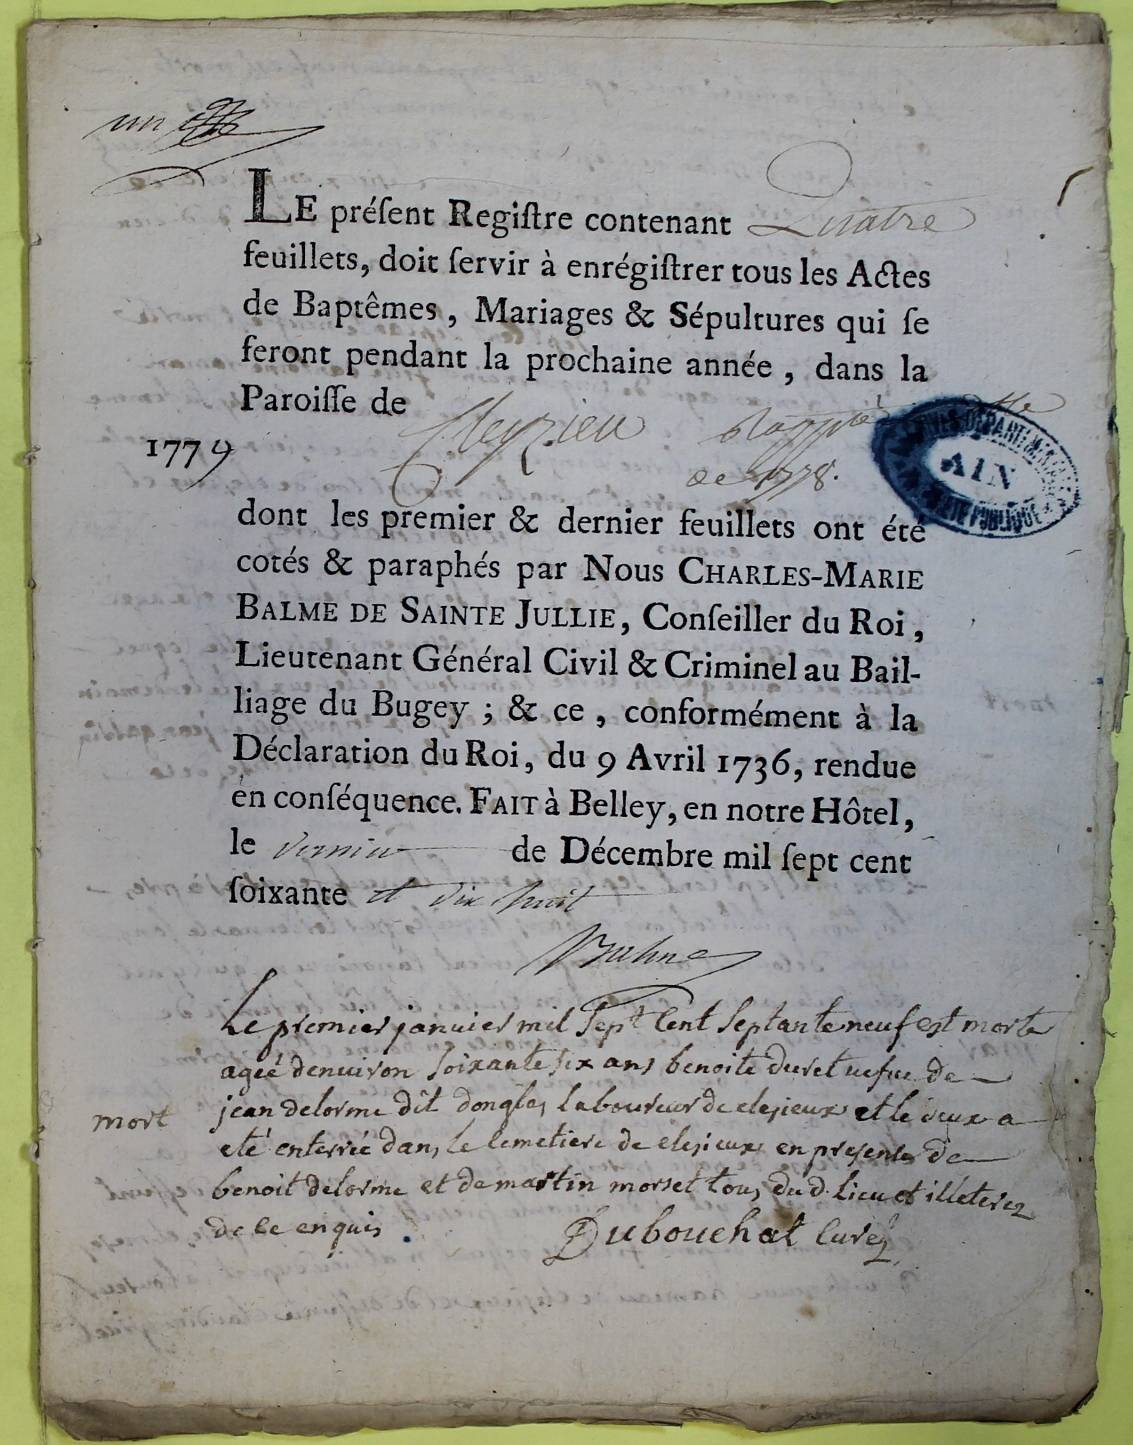 un
LE préſent Regiſtre contenant Quatre
feuillets, doit ſervir à enrégiſtrer tous les Actes
de Baptêmes, Mariages & Sépultures qui ſe
feront pendant la prochaine année, dans la
Paroiſſe de Cleyzieu
de 1778.
1779
ARCHIVES DÉPARTEMENTALES
AIN
RÉPUBLIQUE
dont les premier & dernier feuillets ont été
cotés & paraphés par Nous CHARLES-MARIE
BALME DE SAINTE JULLIE, Conſeiller du Roi,
Lieutenant Général Civil & Criminel au Bail-
liage du Bugey; & ce, conformément à la
Déclaration du Roi, du 9 Avril 1736, rendue
en conſéquence. FAIT à Belley, en notre Hôtel,
le dernier de Décembre mil ſept cent
ſoixante et dix huit
Balme
Le premier januier mil Sept Cent Septante neuf est morte
ageé denuiron soixante six ans benoite duret uefue de
jean delorme dit donglas laboureur de clesieux et le deux a
mort
eté enterrée dans le Cemetiere de clesieux en presence de
benoit delorme et de martin morset tous du d. lieu et illeterez
de ce enquis
Dubouchat Curé